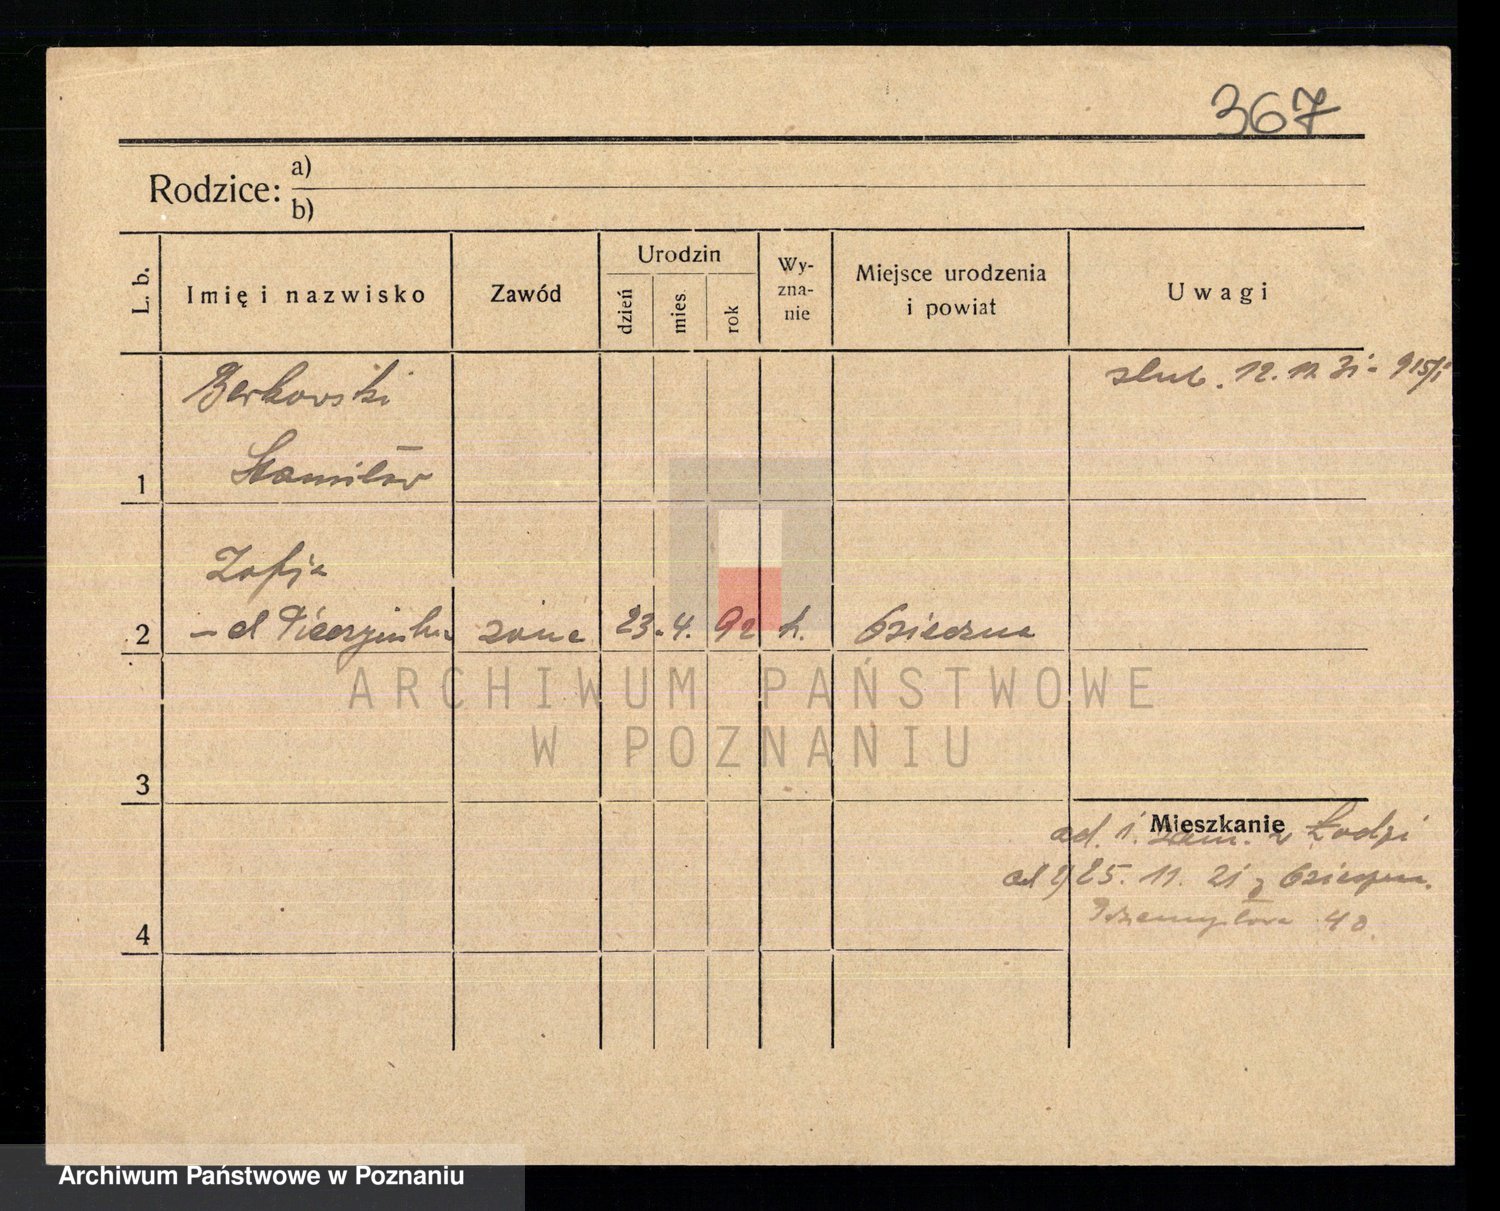 367
Rodzice: a)
b)
L. b.
Imię i nazwisko
Zawód
Urodzin
dzień
mies.
rok
Wy-
zna-
nie
Miejsce urodzenia
i powiat
Uwagi
Berkowski
ślub. 12. 11. 31.
1
Stanisław
Zofja
2
żona 23. 4. 92 k.
3
Mieszkanie
ad. 1. zam. w Łodzi
ad 2) 25. 11. 21 z
4
Przemysłowa 40.
ARCHIWUM PAŃSTWOWE
W POZNANIU
Archiwum Państwowe w Poznaniu